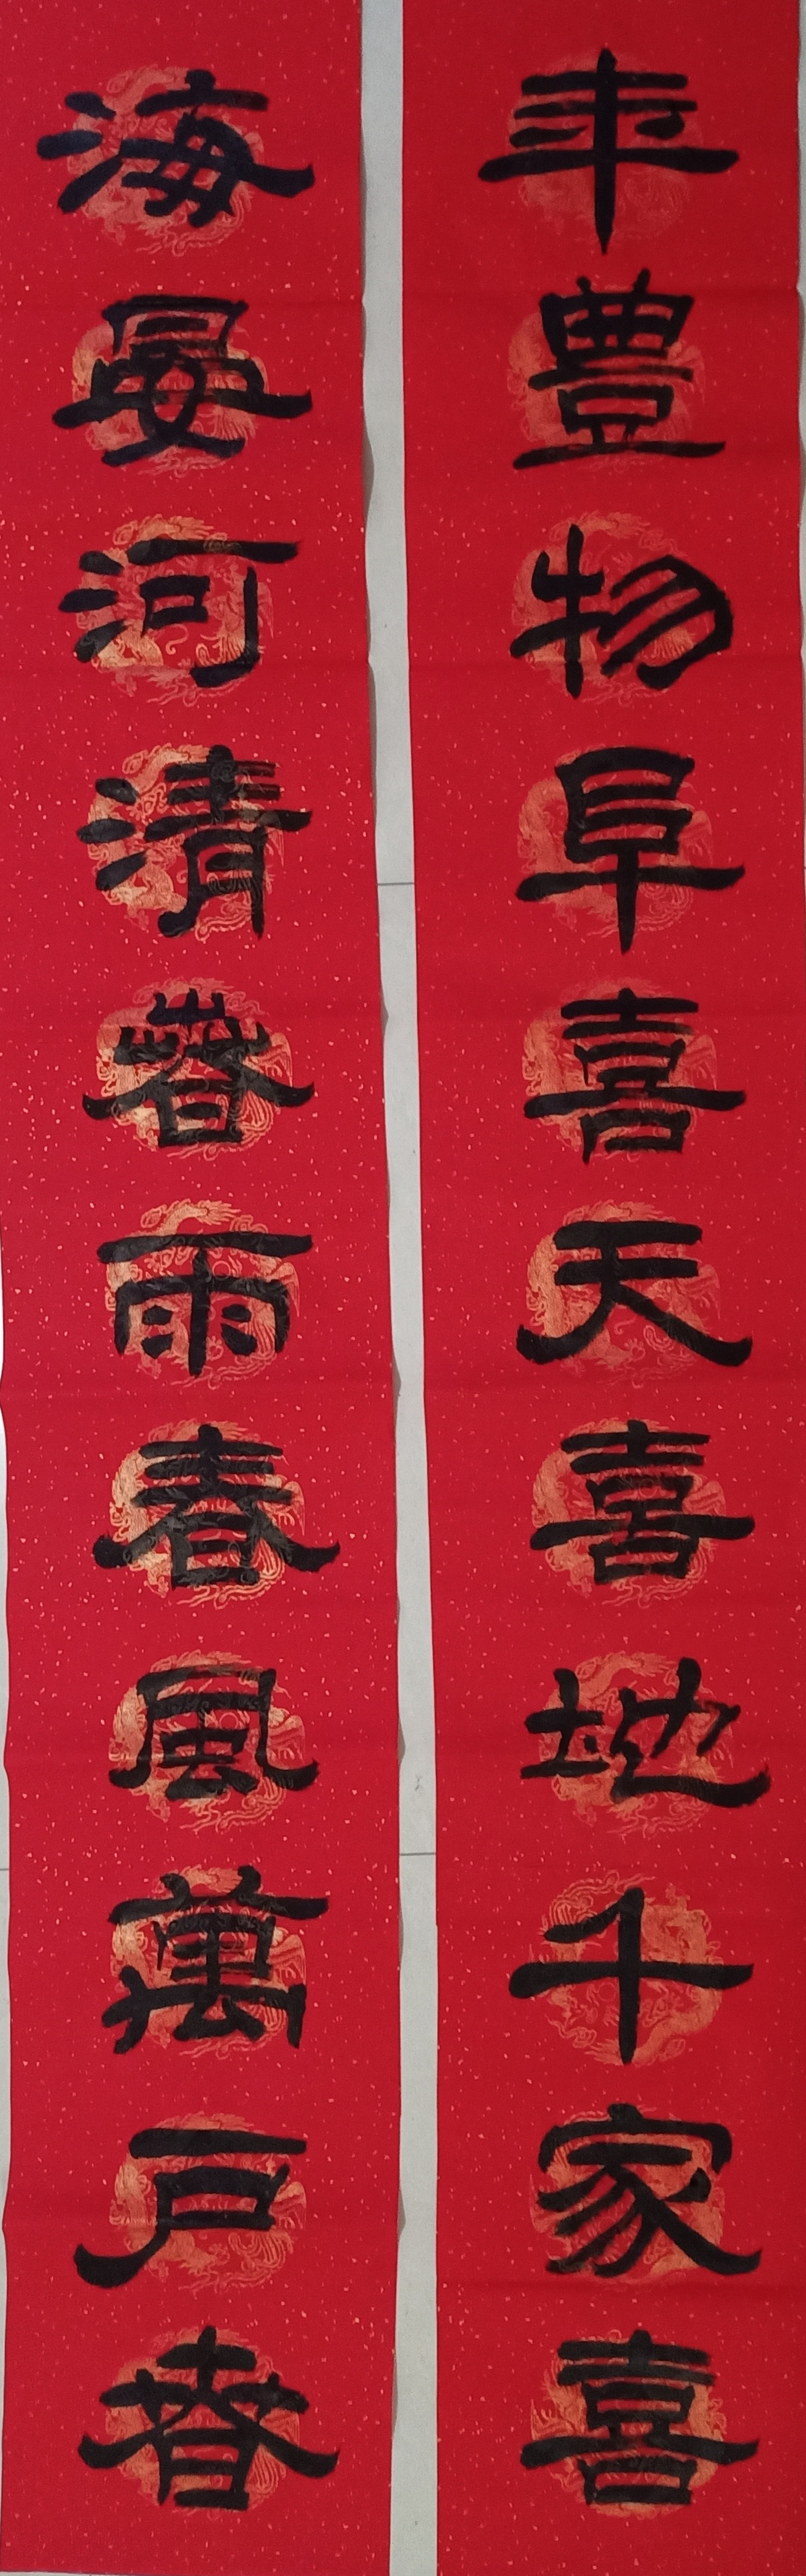 年豐物阜喜天喜地千家喜
海晏河清春雨春風萬戶春